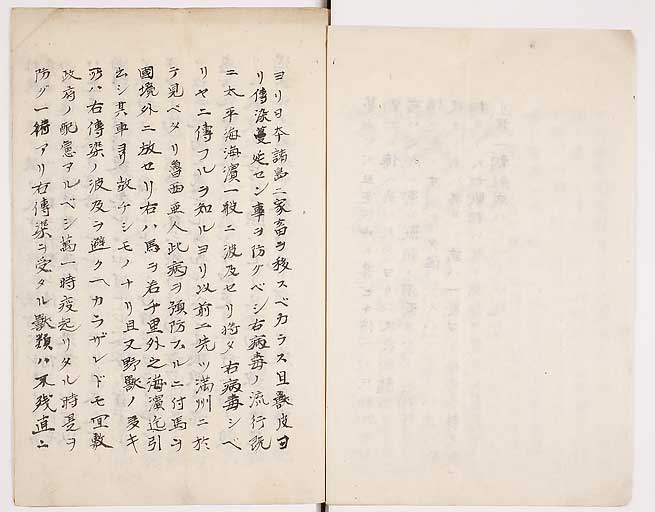 ヨリ日本諸島ニ家畜ヲ移スベカラス且獣皮ヨ
リ傳染蔓延セン事ヲ防グベシ右病毒ノ流行既
ニ太平海海濱一般ニ波及セリ将タ右病毒シベ
リヤニ傳フルヲ知ルヨリ以前ニ先ツ満州ニ於
テ見ベタリ魯西亜人此病ヲ預防スルニ付馬ヲ
國境外ニ放セリ右ハ馬ヲ若干里外之海濱迄引
出シ其車ヨリ放チシモノナリ且又野獣ノ多キ
所ハ右傳染ノ波及ヲ避クヘカラザレドモ宜敷
政府ノ配慮アルベシ萬一時疫起リタル時是ヲ
防グ一術アリ右傳染ヲ受タル獣類ハ不残直ニ